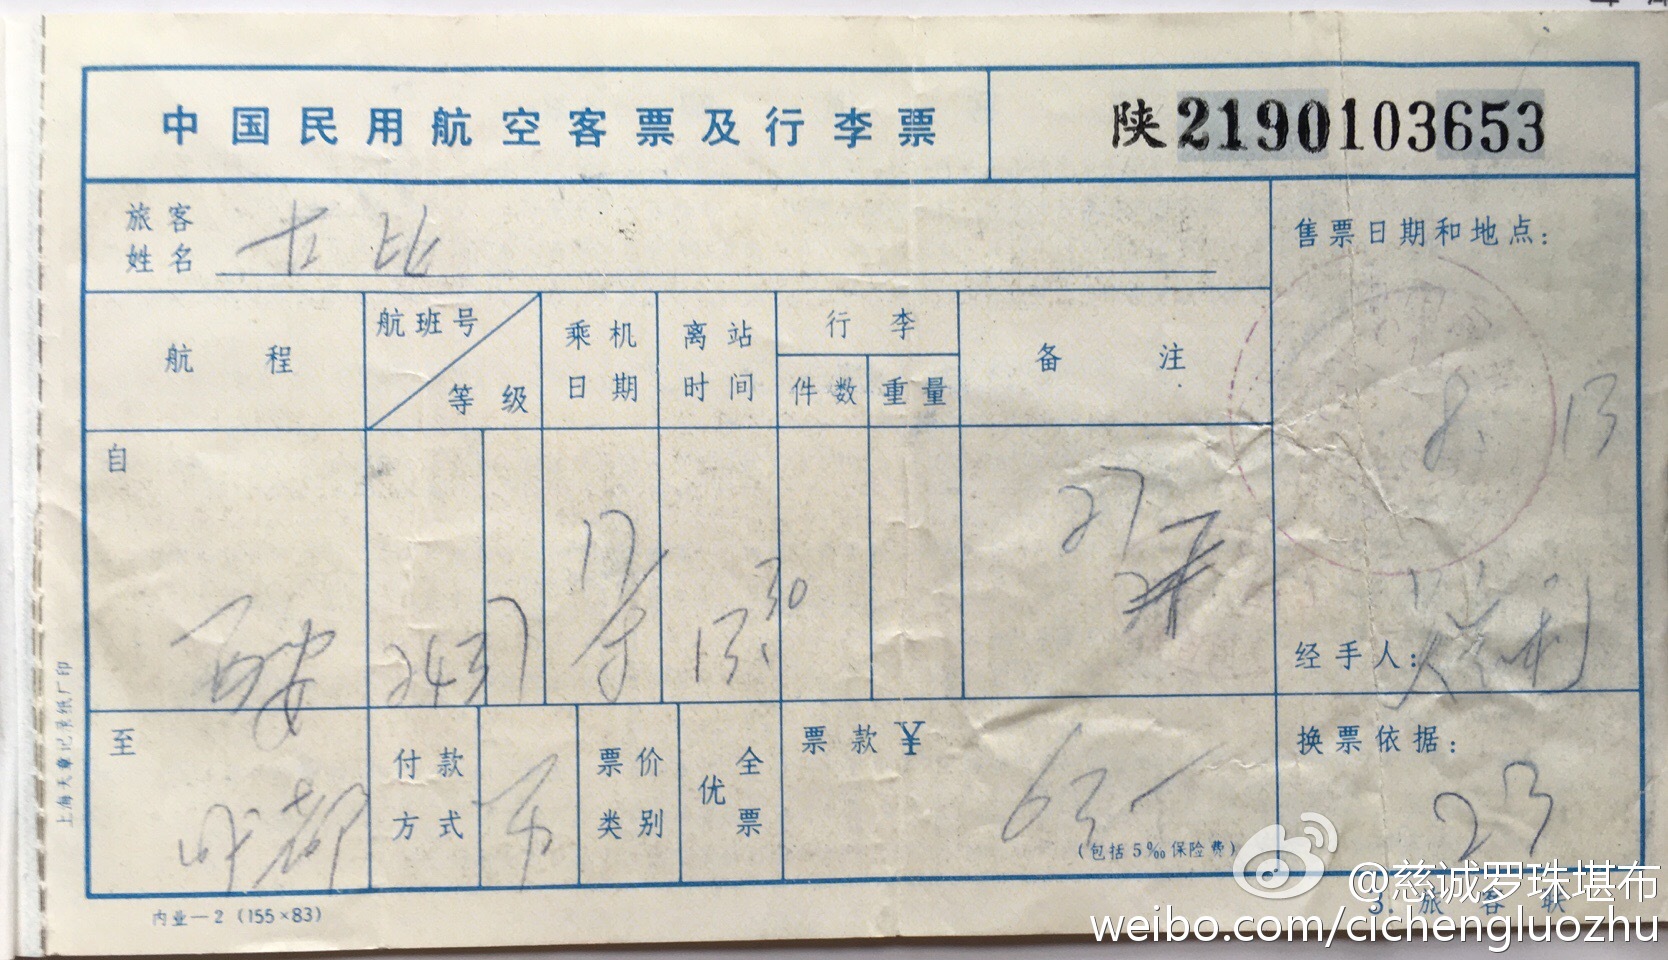 中国民用航空客票及行李票
陕2190103653
旅客
姓名
售票日期和地点:
航程
航班号
等级
乘机
日期
离站
时间
行李
件数
重量
备注
13
自
西安
2437
17/
13:30
27
经手人:
至
成都
付款
方式
票价
类别
全
优
票
票款¥
63
(包括5‰保险费)
换票依据:
23
上海大众记录纸厂印
内业—2 (155×83)
3. 旅客联
@慈诚罗珠堪布
weibo.com/cichengluozhu